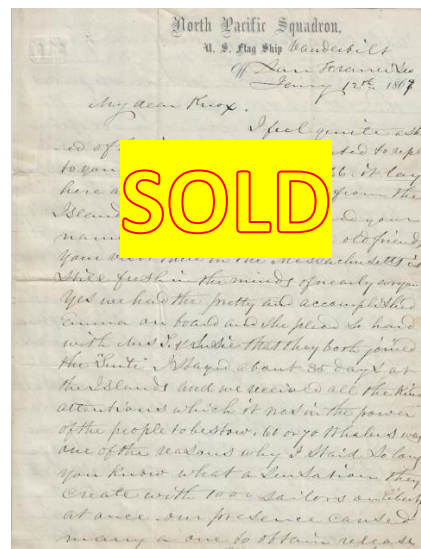 North Pacific Squadron,
U. S. Flag Ship Vanderbilt
off San Francisco
Janry 12th 1867
My dear Knox.
I feel quite ash
ed of
ted to repl
to you 66. it lay
here a from the
Island d your
nam old friends
your visit there in the Massachusetts is
still fresh in the minds of nearly every
Yes we had the pretty and accomplished
Emma on board and she plead so hard
with Mrs T. & Susie that they both joined
the Suite I stayed about 35 days at
the Islands and we received all the kind
attentions which it was in the power
of the people to bestow. 60 or 70 Whalers was
one of the reasons why I staid so long
you know what a sensation they
create with 1000 sailors on liberty
at once. our presence caused
many a one to obtain release
SOLD